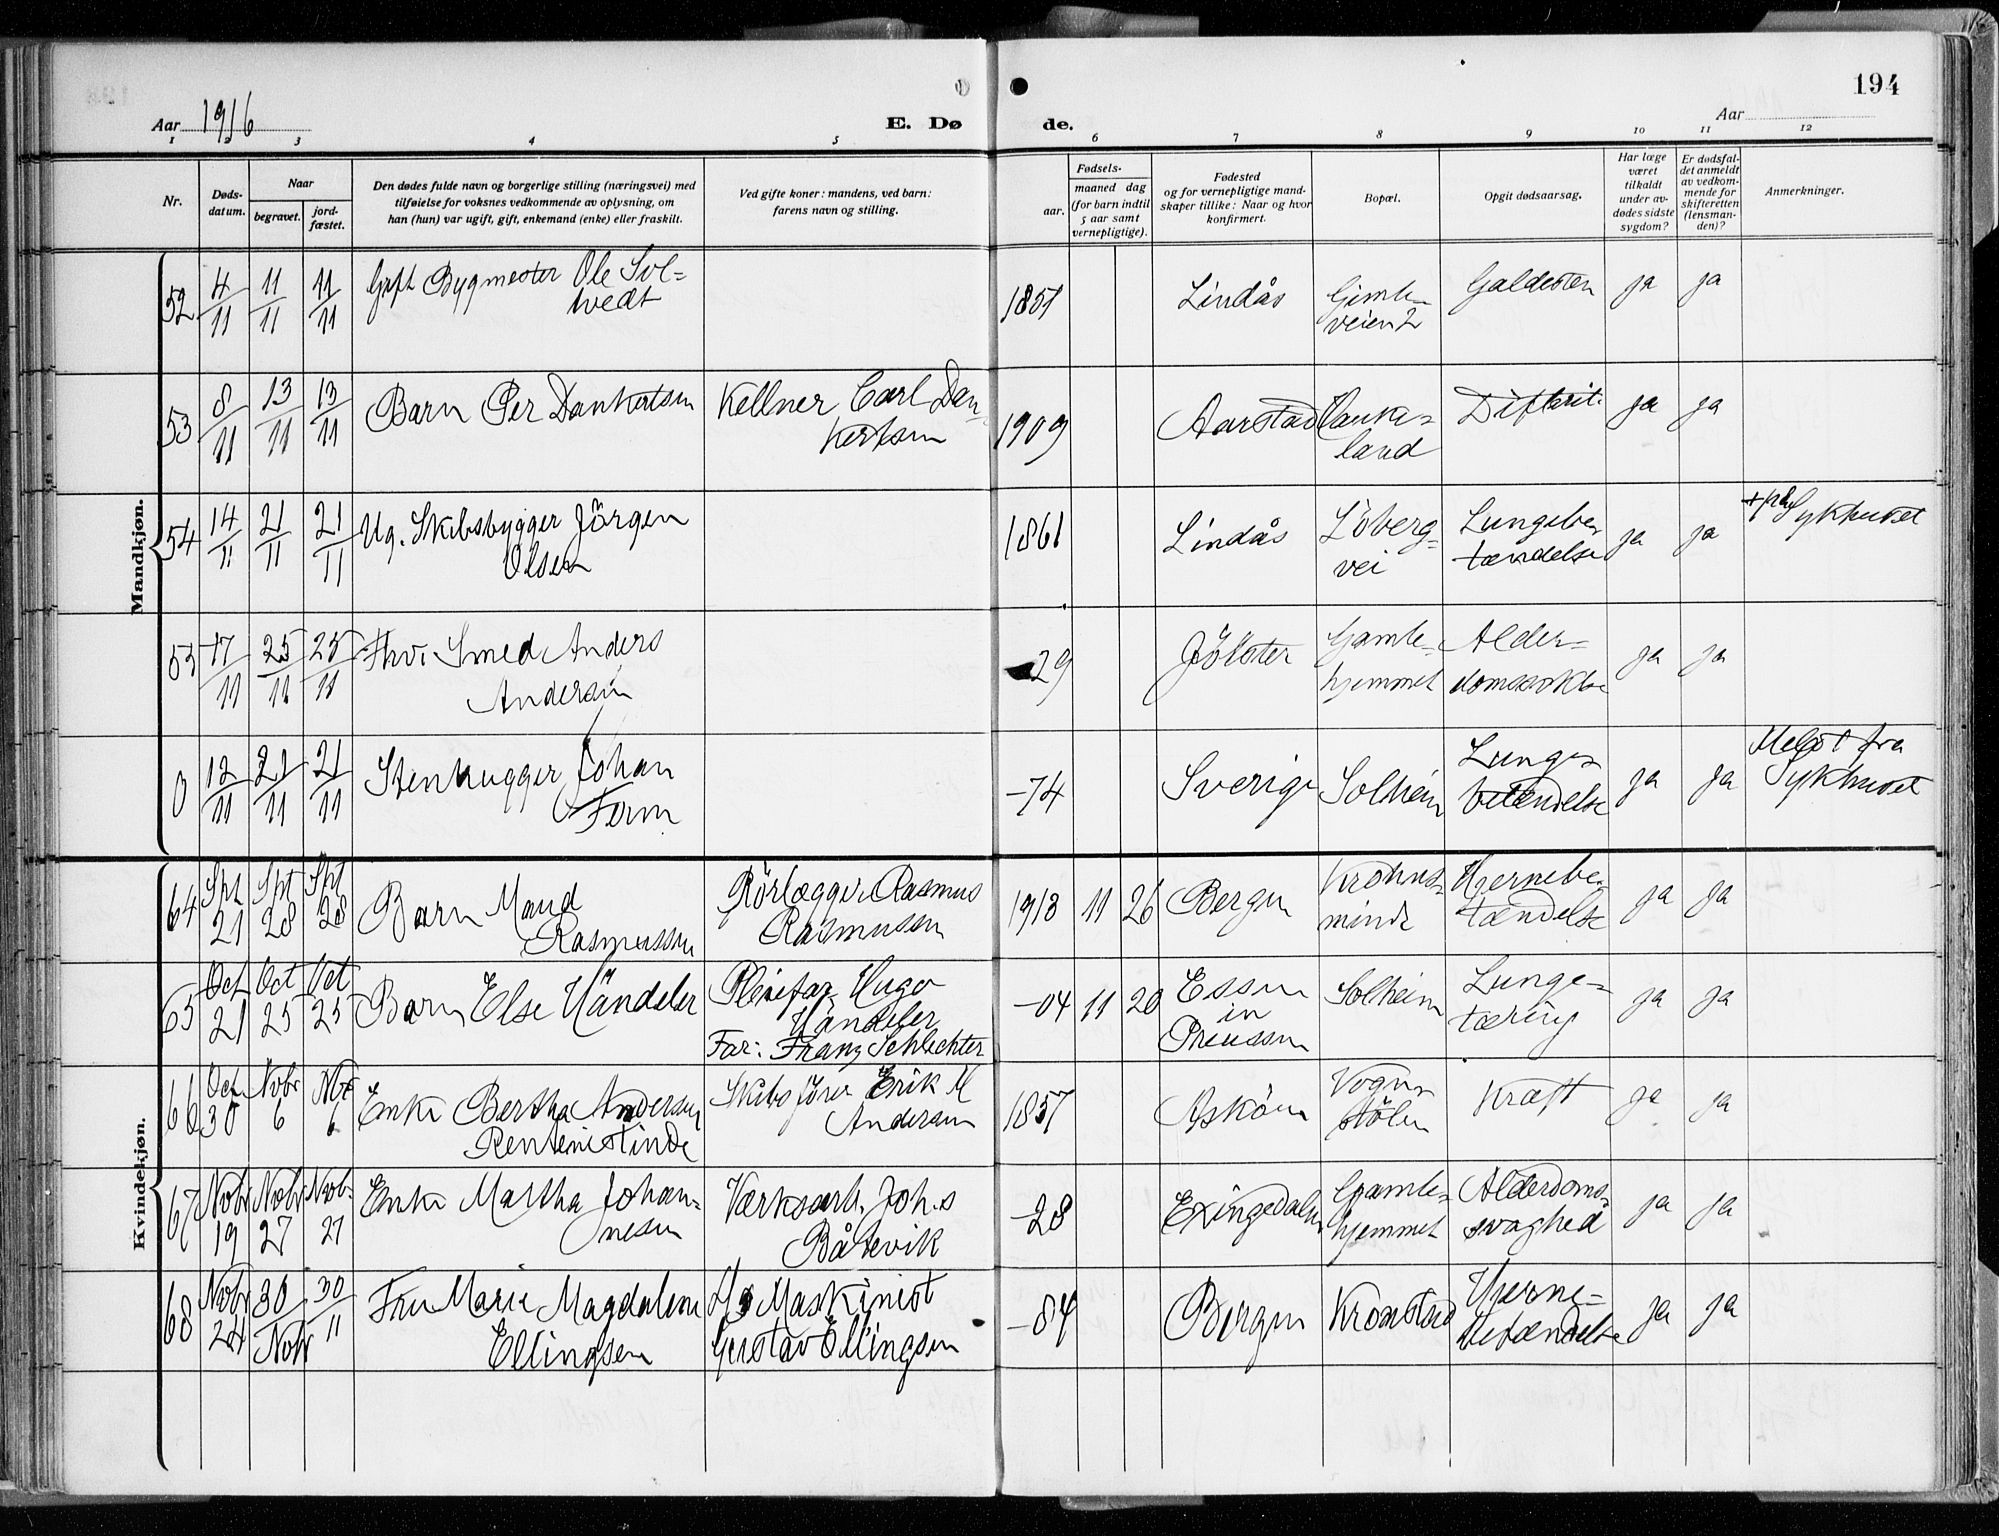 194
Aar 1916
E. Dø
de.
Aar
1 2 3 4 5 6 7 8 9 10 11 12
Nr.
Døds-
datum.
Naar
begravet.
jord-
fæstet.
Den dødes fulde navn og borgerlige stilling (næringsvei) med
tilføielse for voksnes vedkommende av oplysning, om
han (hun) var ugift, gift, enkemand (enke) eller fraskilt.
Ved gifte koner: mandens, ved barn:
farens navn og stilling.
Fødsels-
aar.
maaned dag
(for barn indtil
5 aar samt
vernepligtige).
Fødested
og for vernepligtige mand-
skaper tillike: Naar og hvor
konfirmert.
Bopæl.
Opgit dødsaarsag.
Har læge
været
tilkaldt
under av-
dødes sidste
sygdom?
Er dødsfal-
det anmeldt
av vedkom-
mende for
skifteretten
(lensman-
den)?
Anmerkninger.
Mandkjøn.
52 4/11 11/11 11/11 Gift Bygmester Ole Sol-
tvedt
1851 Lindås Gimle-
veien 2
Galdesten ja ja
53 8/11 13/11 13/11 Barn Per Dankertsen
Kellner Carl Dan-
kertsen
1909 Aarstad Hauke-
land
Difterit. ja ja
54 14/11 21/11 21/11 Ug. Skibsbygger Jörgen
Olsen
1861 Lindås Löberg-
vei
Lungebe-
tændelse
ja ja + på Sykhuset
55 17/11 25/11 25/11 Smed Anders
Andersen
29 Jölster Gamle-
hjemmet
Alder-
ja ja
0 12/11 21/11 21/11 Stenhugger Johan
Ferm
-74 Sverige Solheim
Lunge-
betændelse
ja ja Melot fra
Sykhuset
Kvindekjøn.
64 Spt 21 Spt 28 Spt 28 Barn Maud
Rasmussen
Rörlægger Rasmus
Rasmussen
1913 11 26 Bergen Krohns-
minde
Hjernebe-
tændelse
ja ja
65 Oct 21 Oct 25 Oct 25 Barn Else Händeler
Pleiefar Hugo
Händeler
Far: Franz Schlechter
-04 11 20 Essen
in
Preussen
Solheim Lunge-
tæring
ja ja
66 Oct 30 Nobr 6 Nov 6 Enke Bertha Andersen
Rentenistinde
Skibsförer Erik M
Andersen
1857 Asköen Vogn-
stölen
Kræft ja ja
67 Nobr 19 Nobr 27 Nvb. 27 Enke Martha Johan-
nesen
Værksarb. Joh.s
Båtevik
-28 Exingedalen Gamle-
hjemmet
Alderdoms-
svaghed
ja ja
68 Nobr 24 30/Nobr 30/11 Fru Marie Magdalene
Ellingsen
Maskinist
Gustav Ellingsen
-84 Bergen Kronstad Hjerne-
betændelse
ja ja